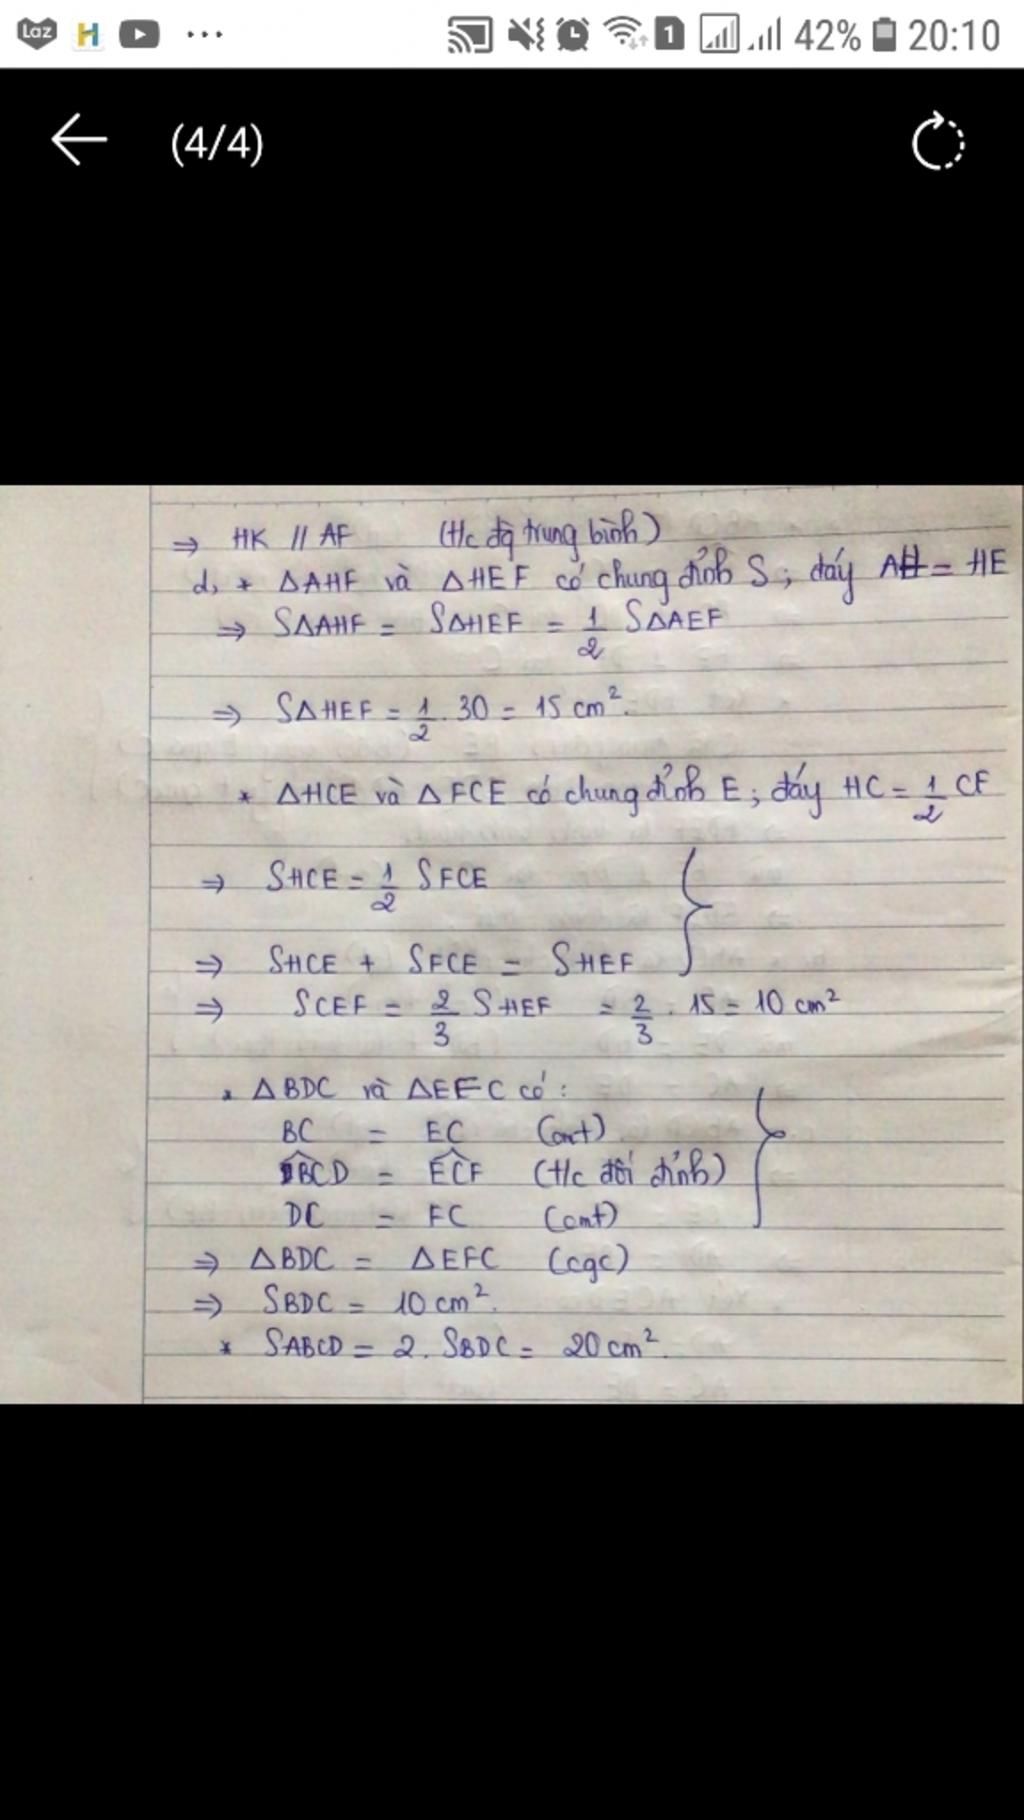 Laz H ... 1 42% 20:10
(4/4)
⇒ HK // AF (t/c đg trung bình)
d, * ΔAHF và ΔHEF có chung đỉnh S; đáy AH = HE
⇒ SΔAHF = SΔHEF = 1/2 SΔAEF
⇒ SΔHEF = 1/2 . 30 = 15 cm².
* ΔHCE và ΔFCE có chung đỉnh E; đáy HC = 1/2 CF
⇒ SHCE = 1/2 SFCE
⇒ SHCE + SFCE = SHEF
⇒ SCEF = 2/3 SHEF = 2/3 . 15 = 10 cm²
* ΔBDC và ΔEFC có:
BC = EC (cmt)
BCD = ECF (t/c đối đỉnh)
DC = FC (cmt)
⇒ ΔBDC = ΔEFC (cgc)
⇒ SBDC = 10 cm².
* SABCD = 2. SBDC = 20 cm².